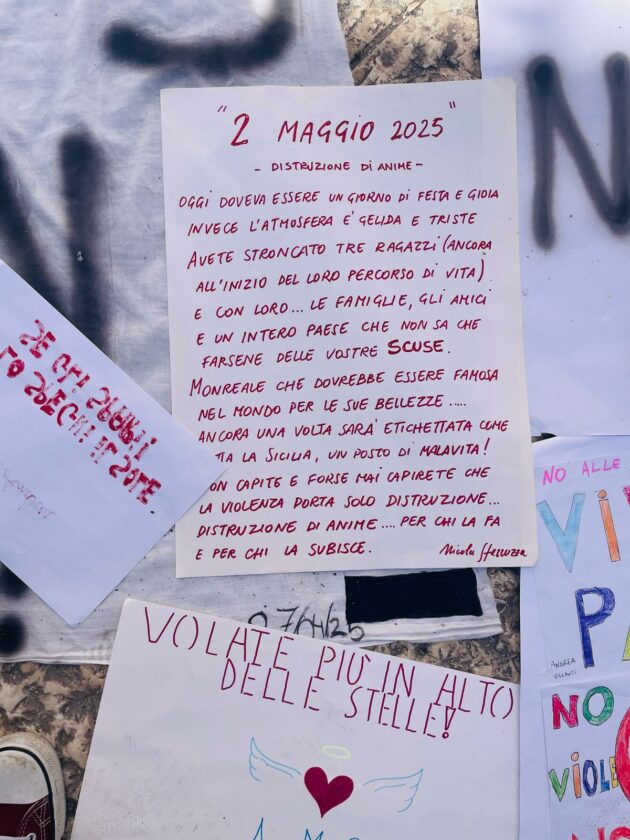 " 2 MAGGIO 2025 "
- DISTRUZIONE DI ANIME -
OGGI DOVEVA ESSERE UN GIORNO DI FESTA E GIOIA
INVECE L'ATMOSFERA E' GELIDA E TRISTE
AVETE STRONCATO TRE RAGAZZI (ANCORA
ALL'INIZIO DEL LORO PERCORSO DI VITA)
E CON LORO... LE FAMIGLIE, GLI AMICI
E UN INTERO PAESE CHE NON SA CHE
FARSENE DELLE VOSTRE SCUSE.
MONREALE CHE DOVREBBE ESSERE FAMOSA
NEL MONDO PER LE SUE BELLEZZE .....
ANCORA UNA VOLTA SARA' ETICHETTATA COME
TTA LA SICILIA, UN POSTO DI MALAVITA!
ON CAPITE E FORSE MAI CAPIRETE CHE
LA VIOLENZA PORTA SOLO DISTRUZIONE...
DISTRUZIONE DI ANIME.... PER CHI LA FA
E PER CHI LA SUBISCE.
Nicola
N
N
SE CHI
LO SPECCHI
07/04/25
VOLATE PIÙ IN ALTO
DELLE STELLE!
A M
NO ALLE
VI
PA
ANDREA
VILLANTI
NO
VIOLE
NO